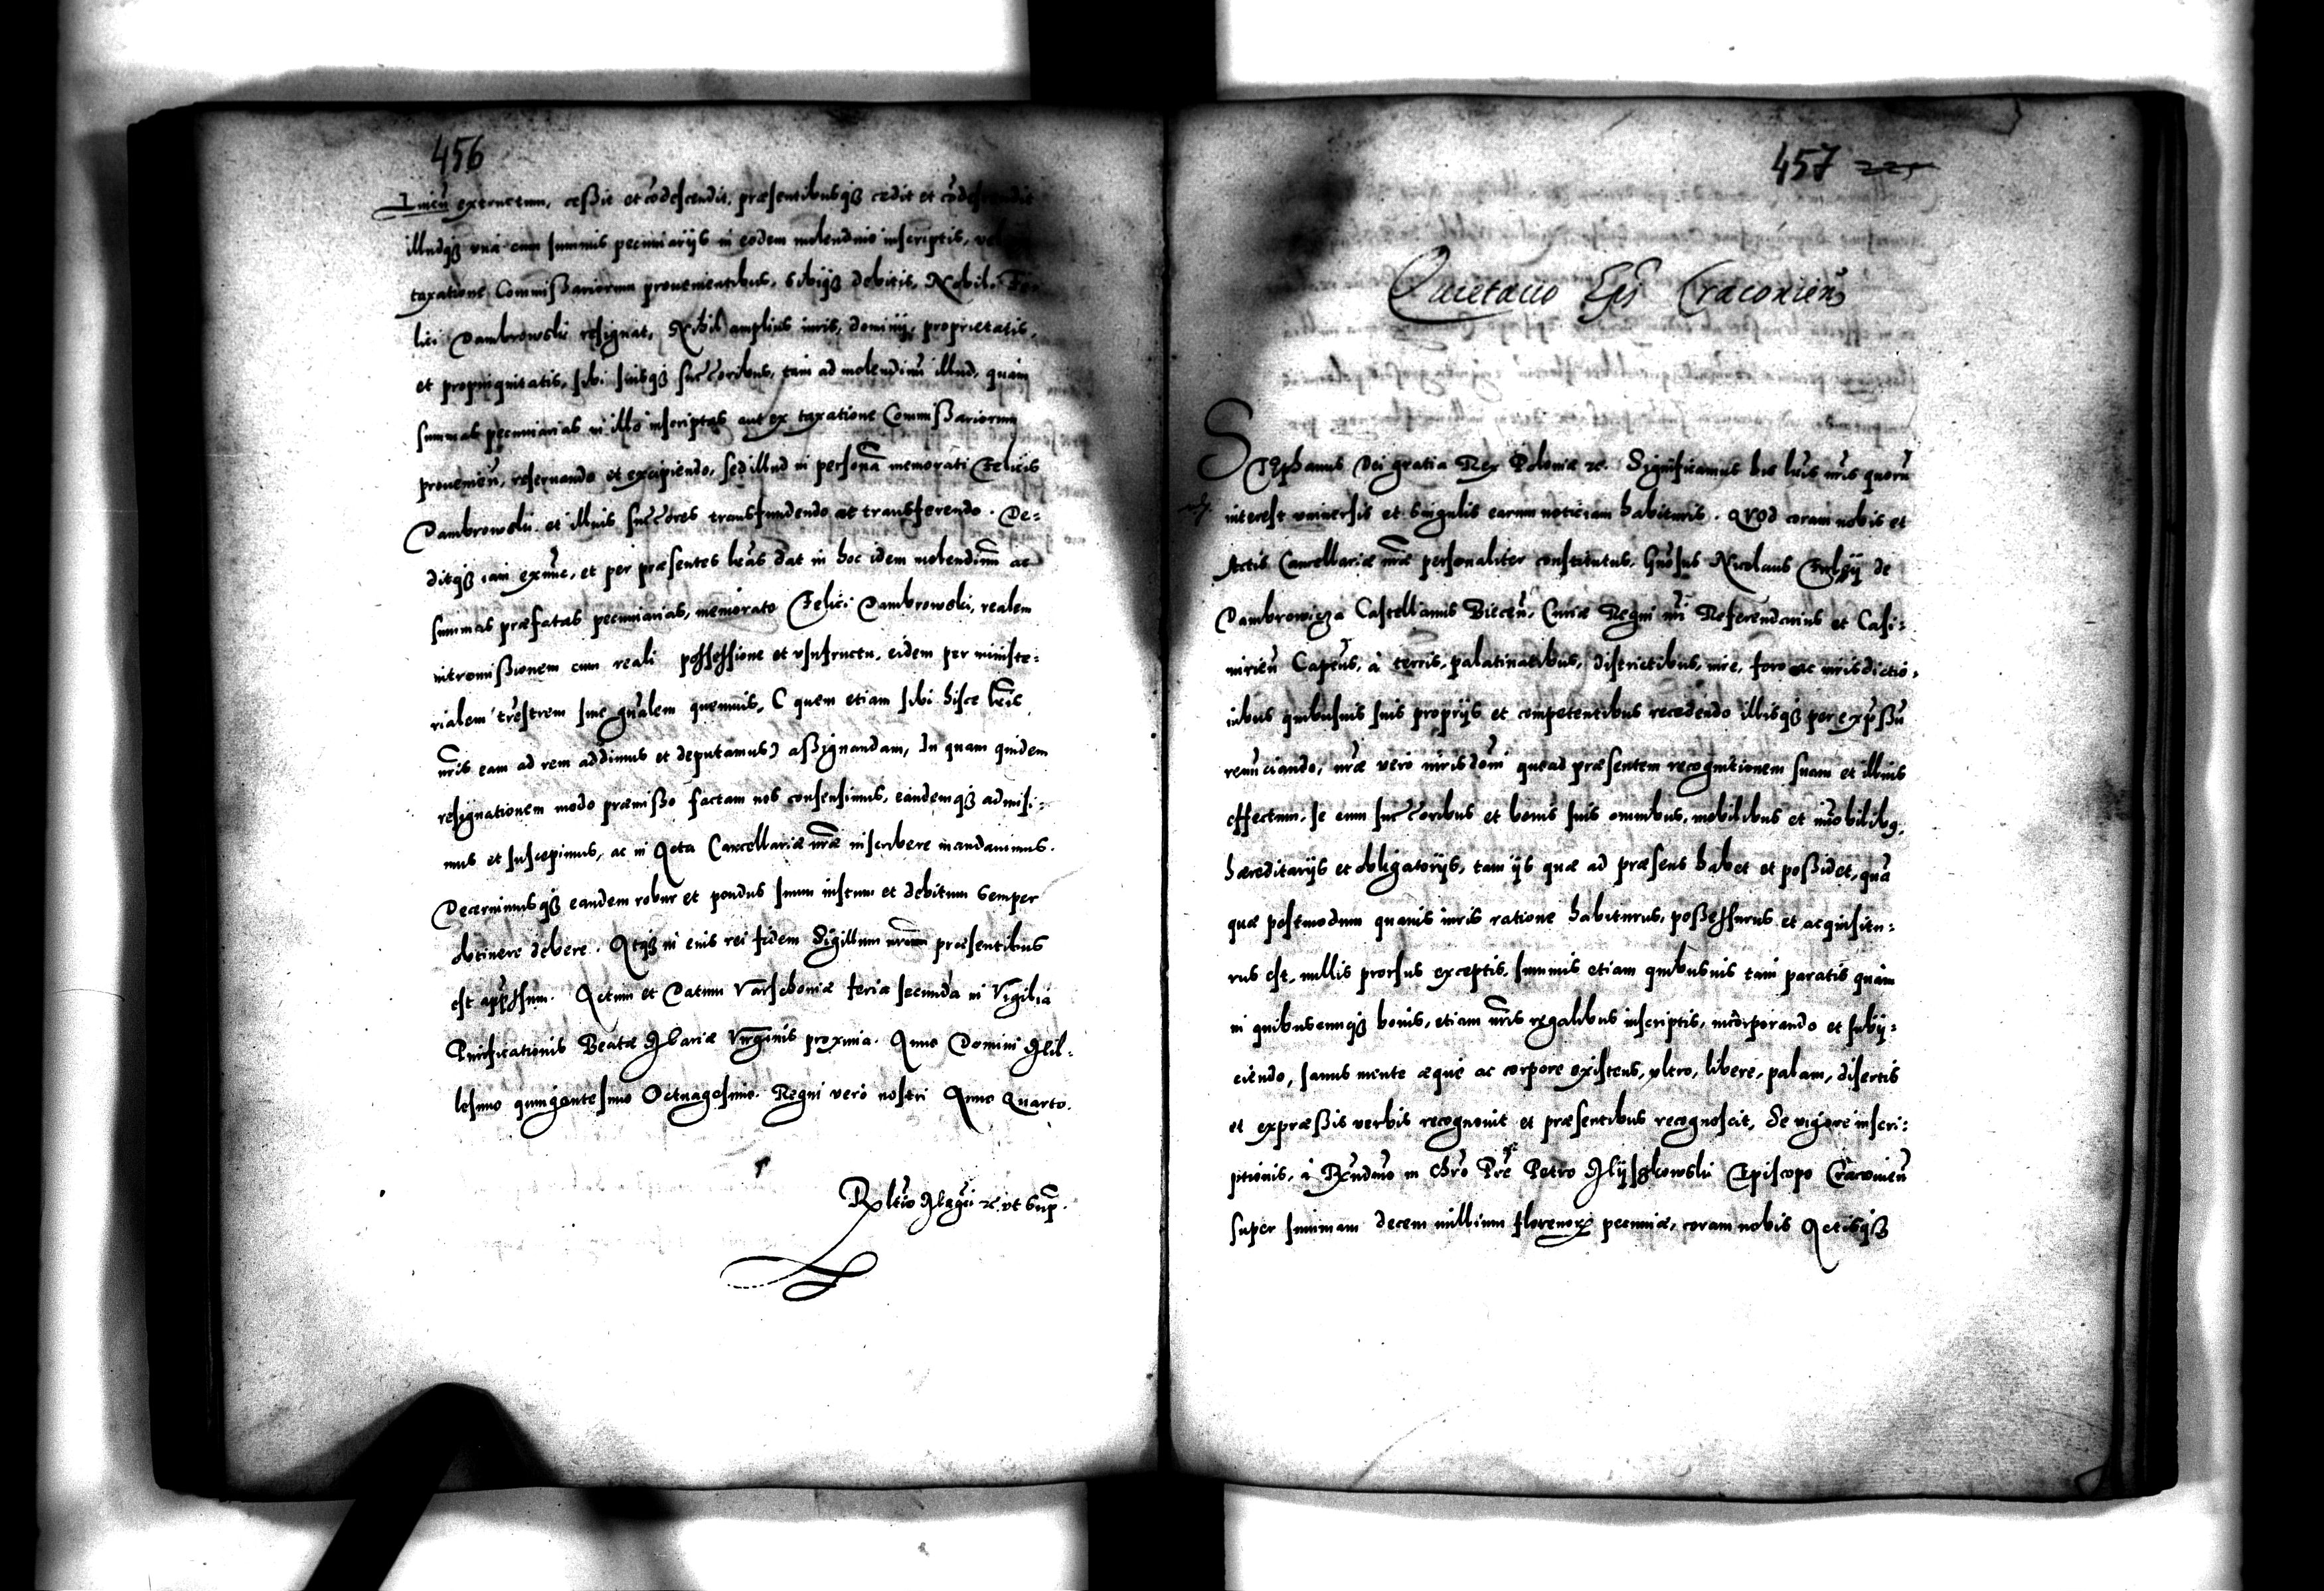 456
exernetum, cessit et codescendit, præsentibusqȝ cedit et codescendit
illudqȝ una cum summis pecuniarijs in eodem molendino inscriptis,
taxatione Commissariorum prouenientibus, sibiqȝ debitis, Nobili Fe
lici Dambrowski resignat, Nihil amplius iuris, dominij, proprietatis,
et propinquitatis, sibi suisqȝ succoribus, tam ad molendinū illud, quam
summas pecuniarias in illo inscriptas aut ex taxatione Commissariorum
prouenien̄, reseruando et excipiendo, sed illud in persona memorati Felicis
Dambrowski et illius succores transfundendo at transferendo. De=
ditqȝ iam exnūc, et per præsentes lr̄as dat in hoc idem molendinū ac
summas præfatas pecuniarias, memorato Felici Dambrowski, realem
intromissionem cum reali possessione et vsufructu, eidem per ministe=
rialem tr̄estrem siue gn̄alem quemuis, ( quem etiam sibi hisce lr̄is
nr̄is eam ad rem addimus et deputamus) assignandam, In quam quidem
resignationem modo præmisso factam nos consensimus, eandemqȝ admisi=
mus et suscepimus, ac in Acta Cancellariæ nr̄æ inscribere mandauimus.
Decernimusqȝ eandem robur et pondus suum iustum et debitum semper
obtinere debere. Atqȝ in eius rei fidem Sigillum nrūm præsentibus
est app̄ssum. Actum et Datum Varschouiæ feria secunda in Vigilia
Purificationis Beatæ Mariæ Virginis proxima. Anno Domini Mil=
lesimo quingentesimo Octuagesimo. Regni vero nostri Anno Quarto.
R̄ltio Mag̃ci ꝛc. vt sup̄.
457
Quietatio Epī Cracouien̄
Stephanus Dei gratia Rex Poloniæ ꝛc. Significamus his lr̄is nr̄is quorū
interest vniuersis et singulis earum noticiam habituris. QVOd coram nobis et
Actis Cancellariæ nr̄æ personaliter constitutus, Gn̄osus Nicolaus Firley de
Dambrowicza Castellanus Biecen̄, Curiæ Regni nr̄i Referendarius et Casi=
mirien̄ Capn̄us, à terris, palatinatibus, districtibus, iure, foro ac iurisdictio=
inibus quibusuis suis proprijs et competentibus recedendo illisqȝ per exp̄ssū
renunciando, nr̄æ vero iurisdoni quoad præsentem recognitionem suam et illius
effectum, se cum succoribus et bonis suis omnibus, mobilibus et im̄obilibꝰ,
hæreditarijs et obligatorijs, tam ijs quæ ad præsens habet et possidet, quā
quæ postmodum quauis iuris ratione habiturus, possessurus et acquisitu=
rus est, nullis prorsus exceptis, summis etiam quibusuis tam paratis quam
in quibuscunqȝ bonis, etiam nr̄is regalibus inscriptis, incorporando et subij=
ciendo, sanus mente æque ac corpore existens, vltro, libere, palam, disertis
et expræssis verbis recognouit et præsentibus recognoscit, Se vigore inscri=
ptionis, à Rn̄dmo in Chr̄o Pr̄e Petro Myszkowski Episcopo Cracouien̄
super summam decem millium florenorꝝ pecuniæ, coram nobis Actisqȝ